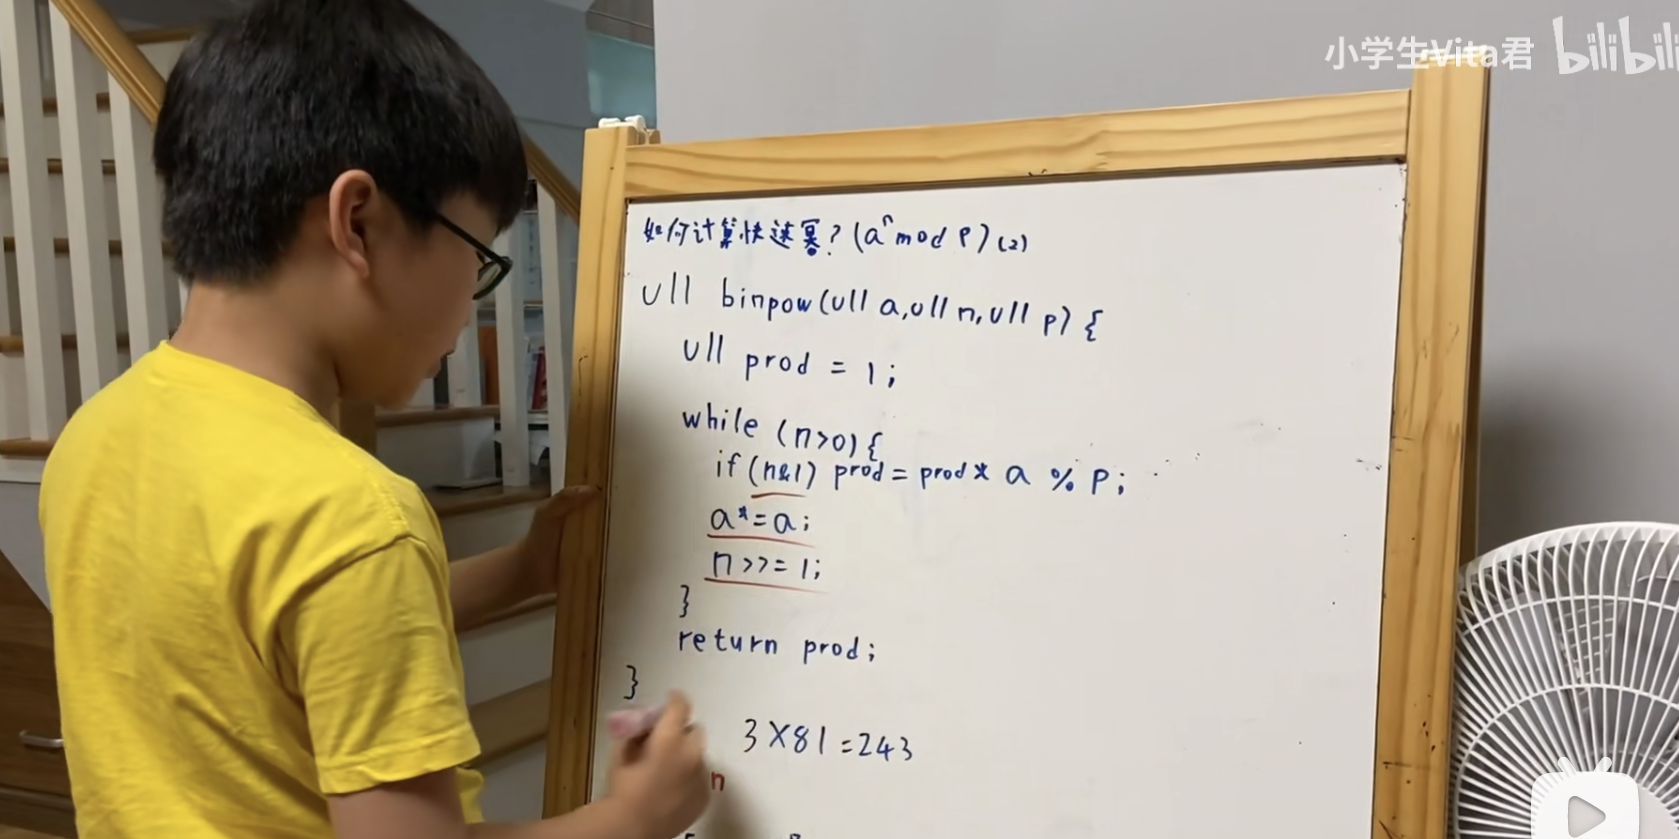 小学生Vita君 bilibili
如何计算快速幂?(aⁿ mod P)(2)
ull binpow(ull a,ull n,ull p) {
ull prod = 1;
while (n>0) {
if (n&1) prod = prod * a % P;
a*=a;
n>>=1;
}
return prod;
}
3×81=243
n